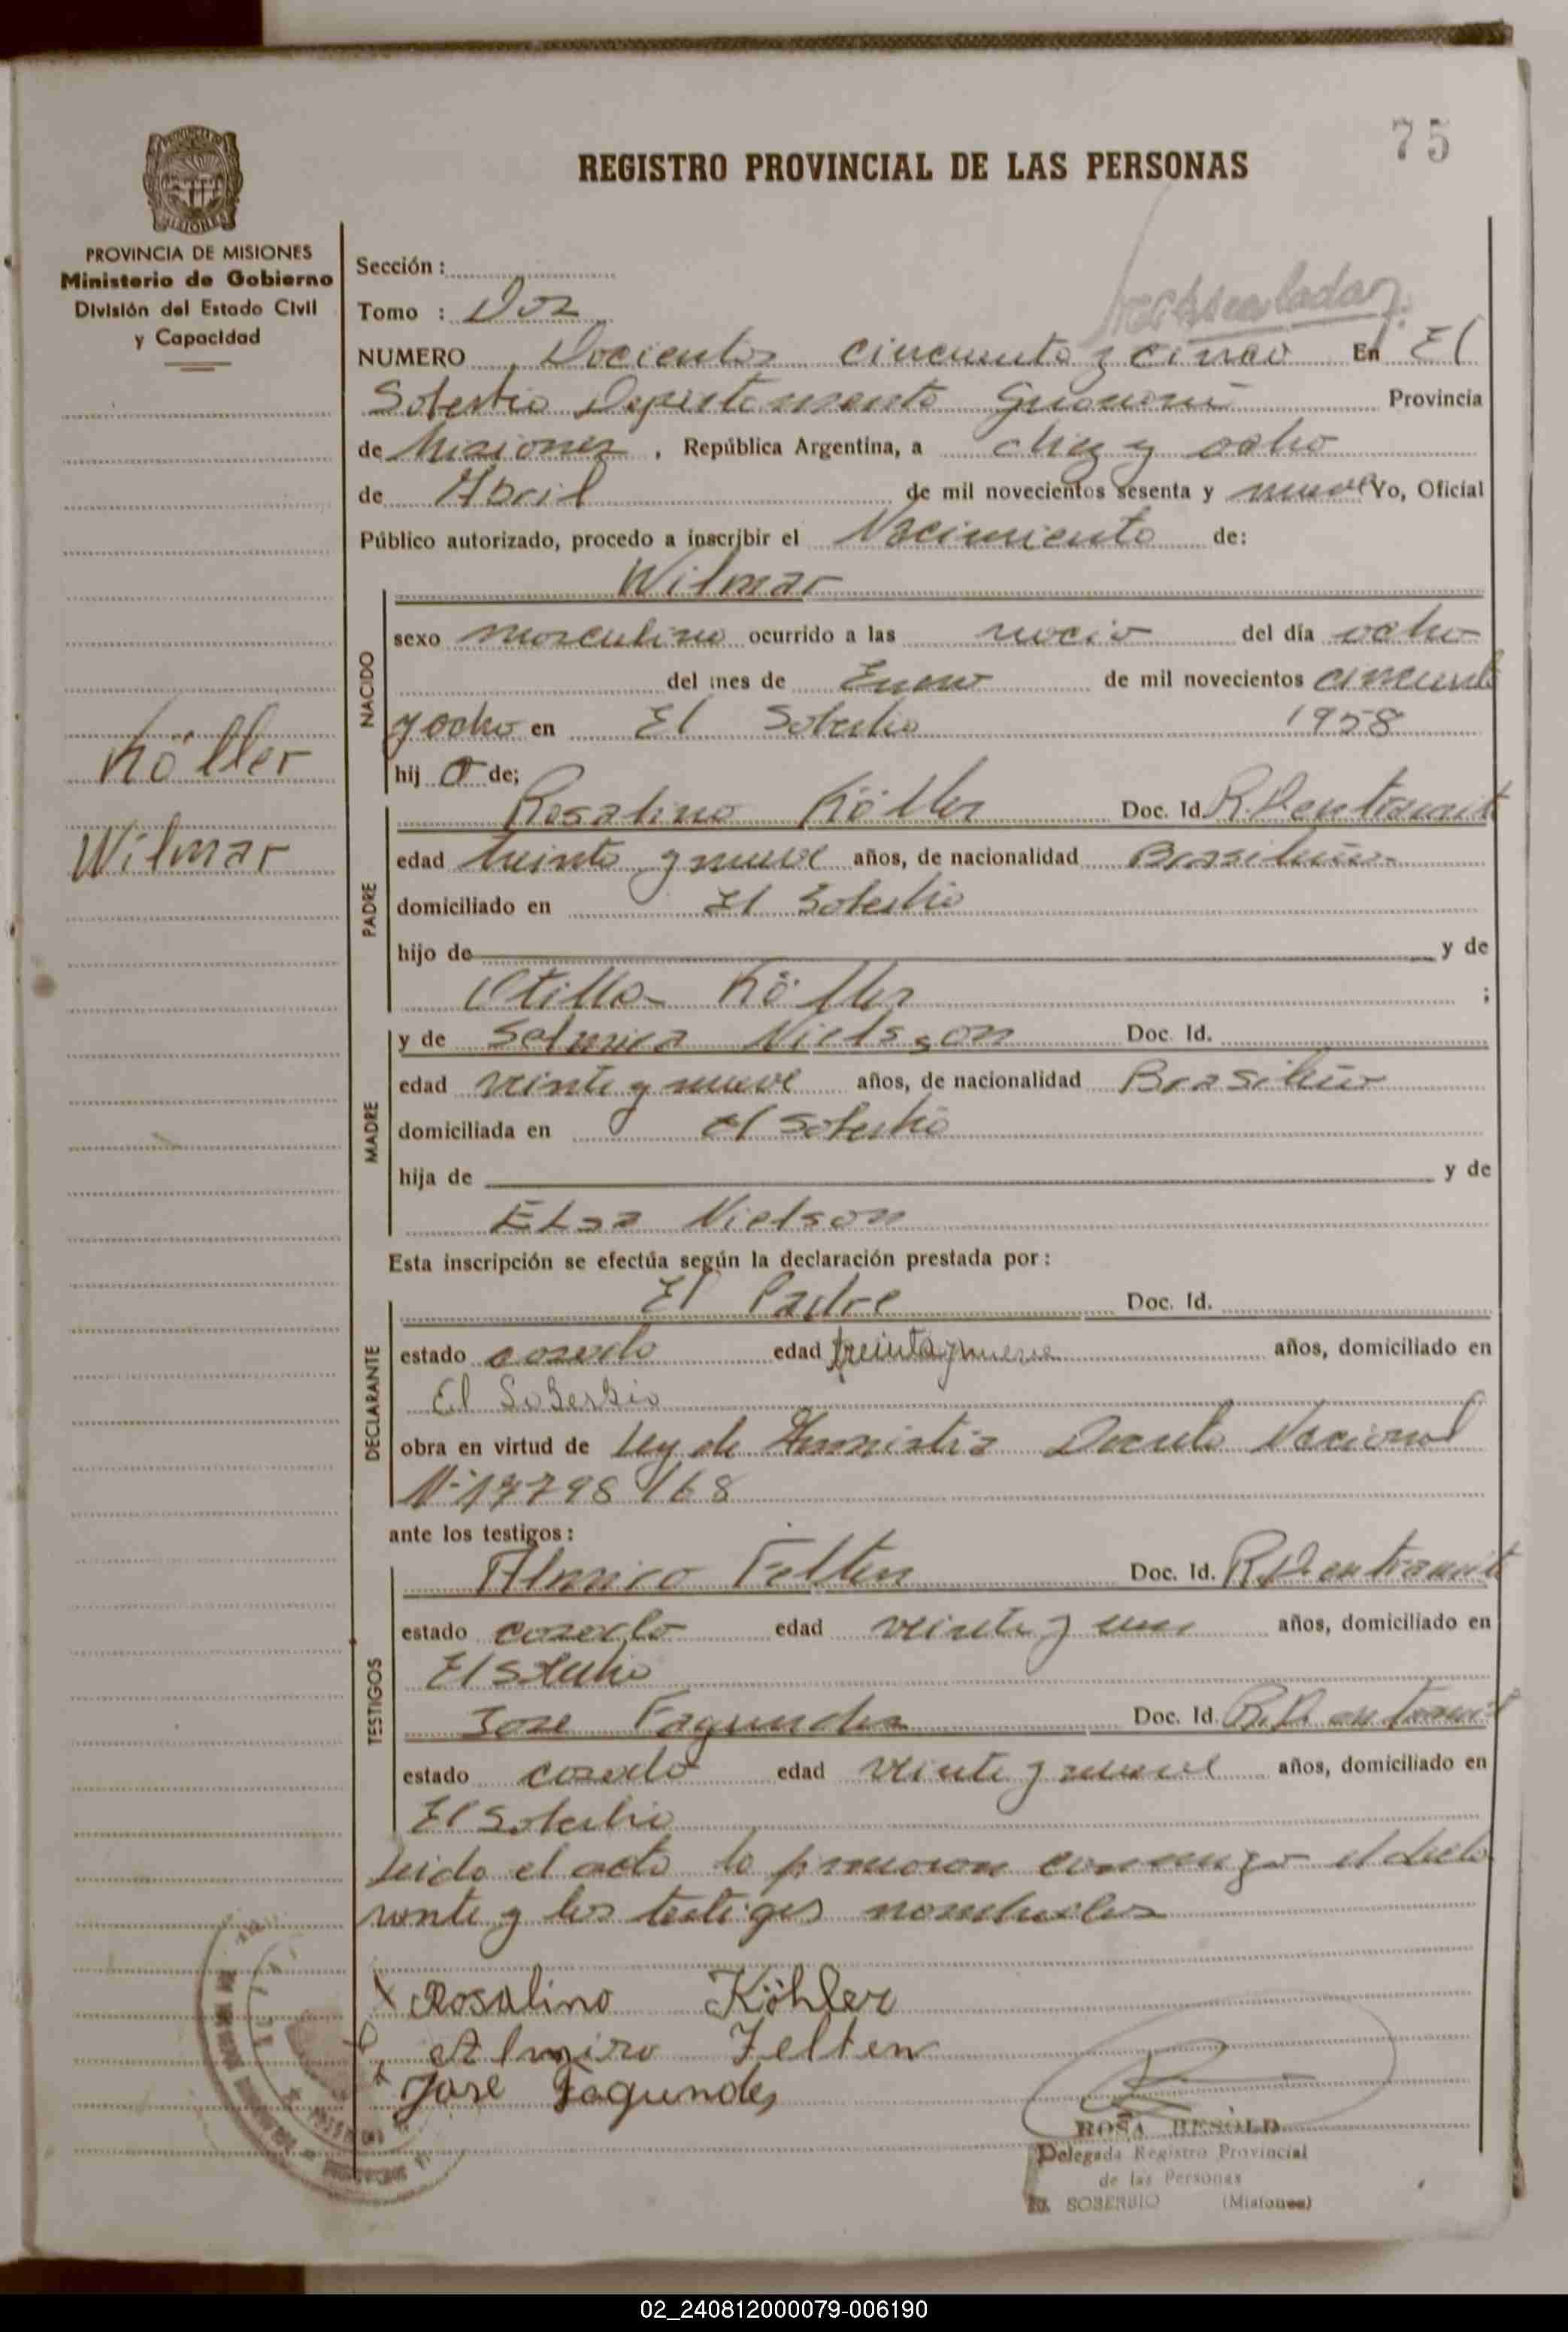 75
REGISTRO PROVINCIAL DE LAS PERSONAS
PROVINCIA DE MISIONES
Ministerio de Gobierno
División del Estado Civil
y Capacidad
Köller
Wilmar
Sección :
Tomo : Dos
NUMERO Docientos cincuenta y cinco En El
Soberbio Departamento Guaraní Provincia
de Misiones , República Argentina, a diez y ocho
de Abril de mil novecientos sesenta y nueve Yo, Oficial
Público autorizado, procedo a inscribir el Nacimiento de:
NACIDO
Wilmar
sexo masculino ocurrido a las del día ocho
del mes de Enero de mil novecientos cincuenta
y ocho en El Soberbio 1958
hij o de;
PADRE
Rosalino Köller Doc. Id. R.P. en tramit
edad treinta y nueve años, de nacionalidad Brasileño
domiciliado en El Soberbio
hijo de y de
Otilla Köller ;
MADRE
y de Selmira Nielsson Doc. Id.
edad veinte y nueve años, de nacionalidad Brasileño
domiciliada en El Soberbio
hija de y de
Elsa Nielson
Esta inscripción se efectúa según la declaración prestada por :
DECLARANTE
El Padre Doc. Id.
estado casado edad treinta y nueve años, domiciliado en
El Soberbio
obra en virtud de Ley de Amnistia Decreto Nacional
Nº 17798/68
ante los testigos :
TESTIGOS
Almiro Felten Doc. Id. R.P. en tramit
estado casado edad veinte y un años, domiciliado en
El Soberbio
Jose Fagundes Doc. Id. R.P. en tramit
estado casado edad veinte y nueve años, domiciliado en
El Soberbio
Leido el acta la firmaron conmigo el decla
rante y los testigos nombrados
x Rosalino Köhler
x Almiro Felten
x Jose Fagundes
ROSA RESOLD
Delegada Registro Provincial
de las Personas
EL SOBERBIO (Misiones)
02_240812000079-006190